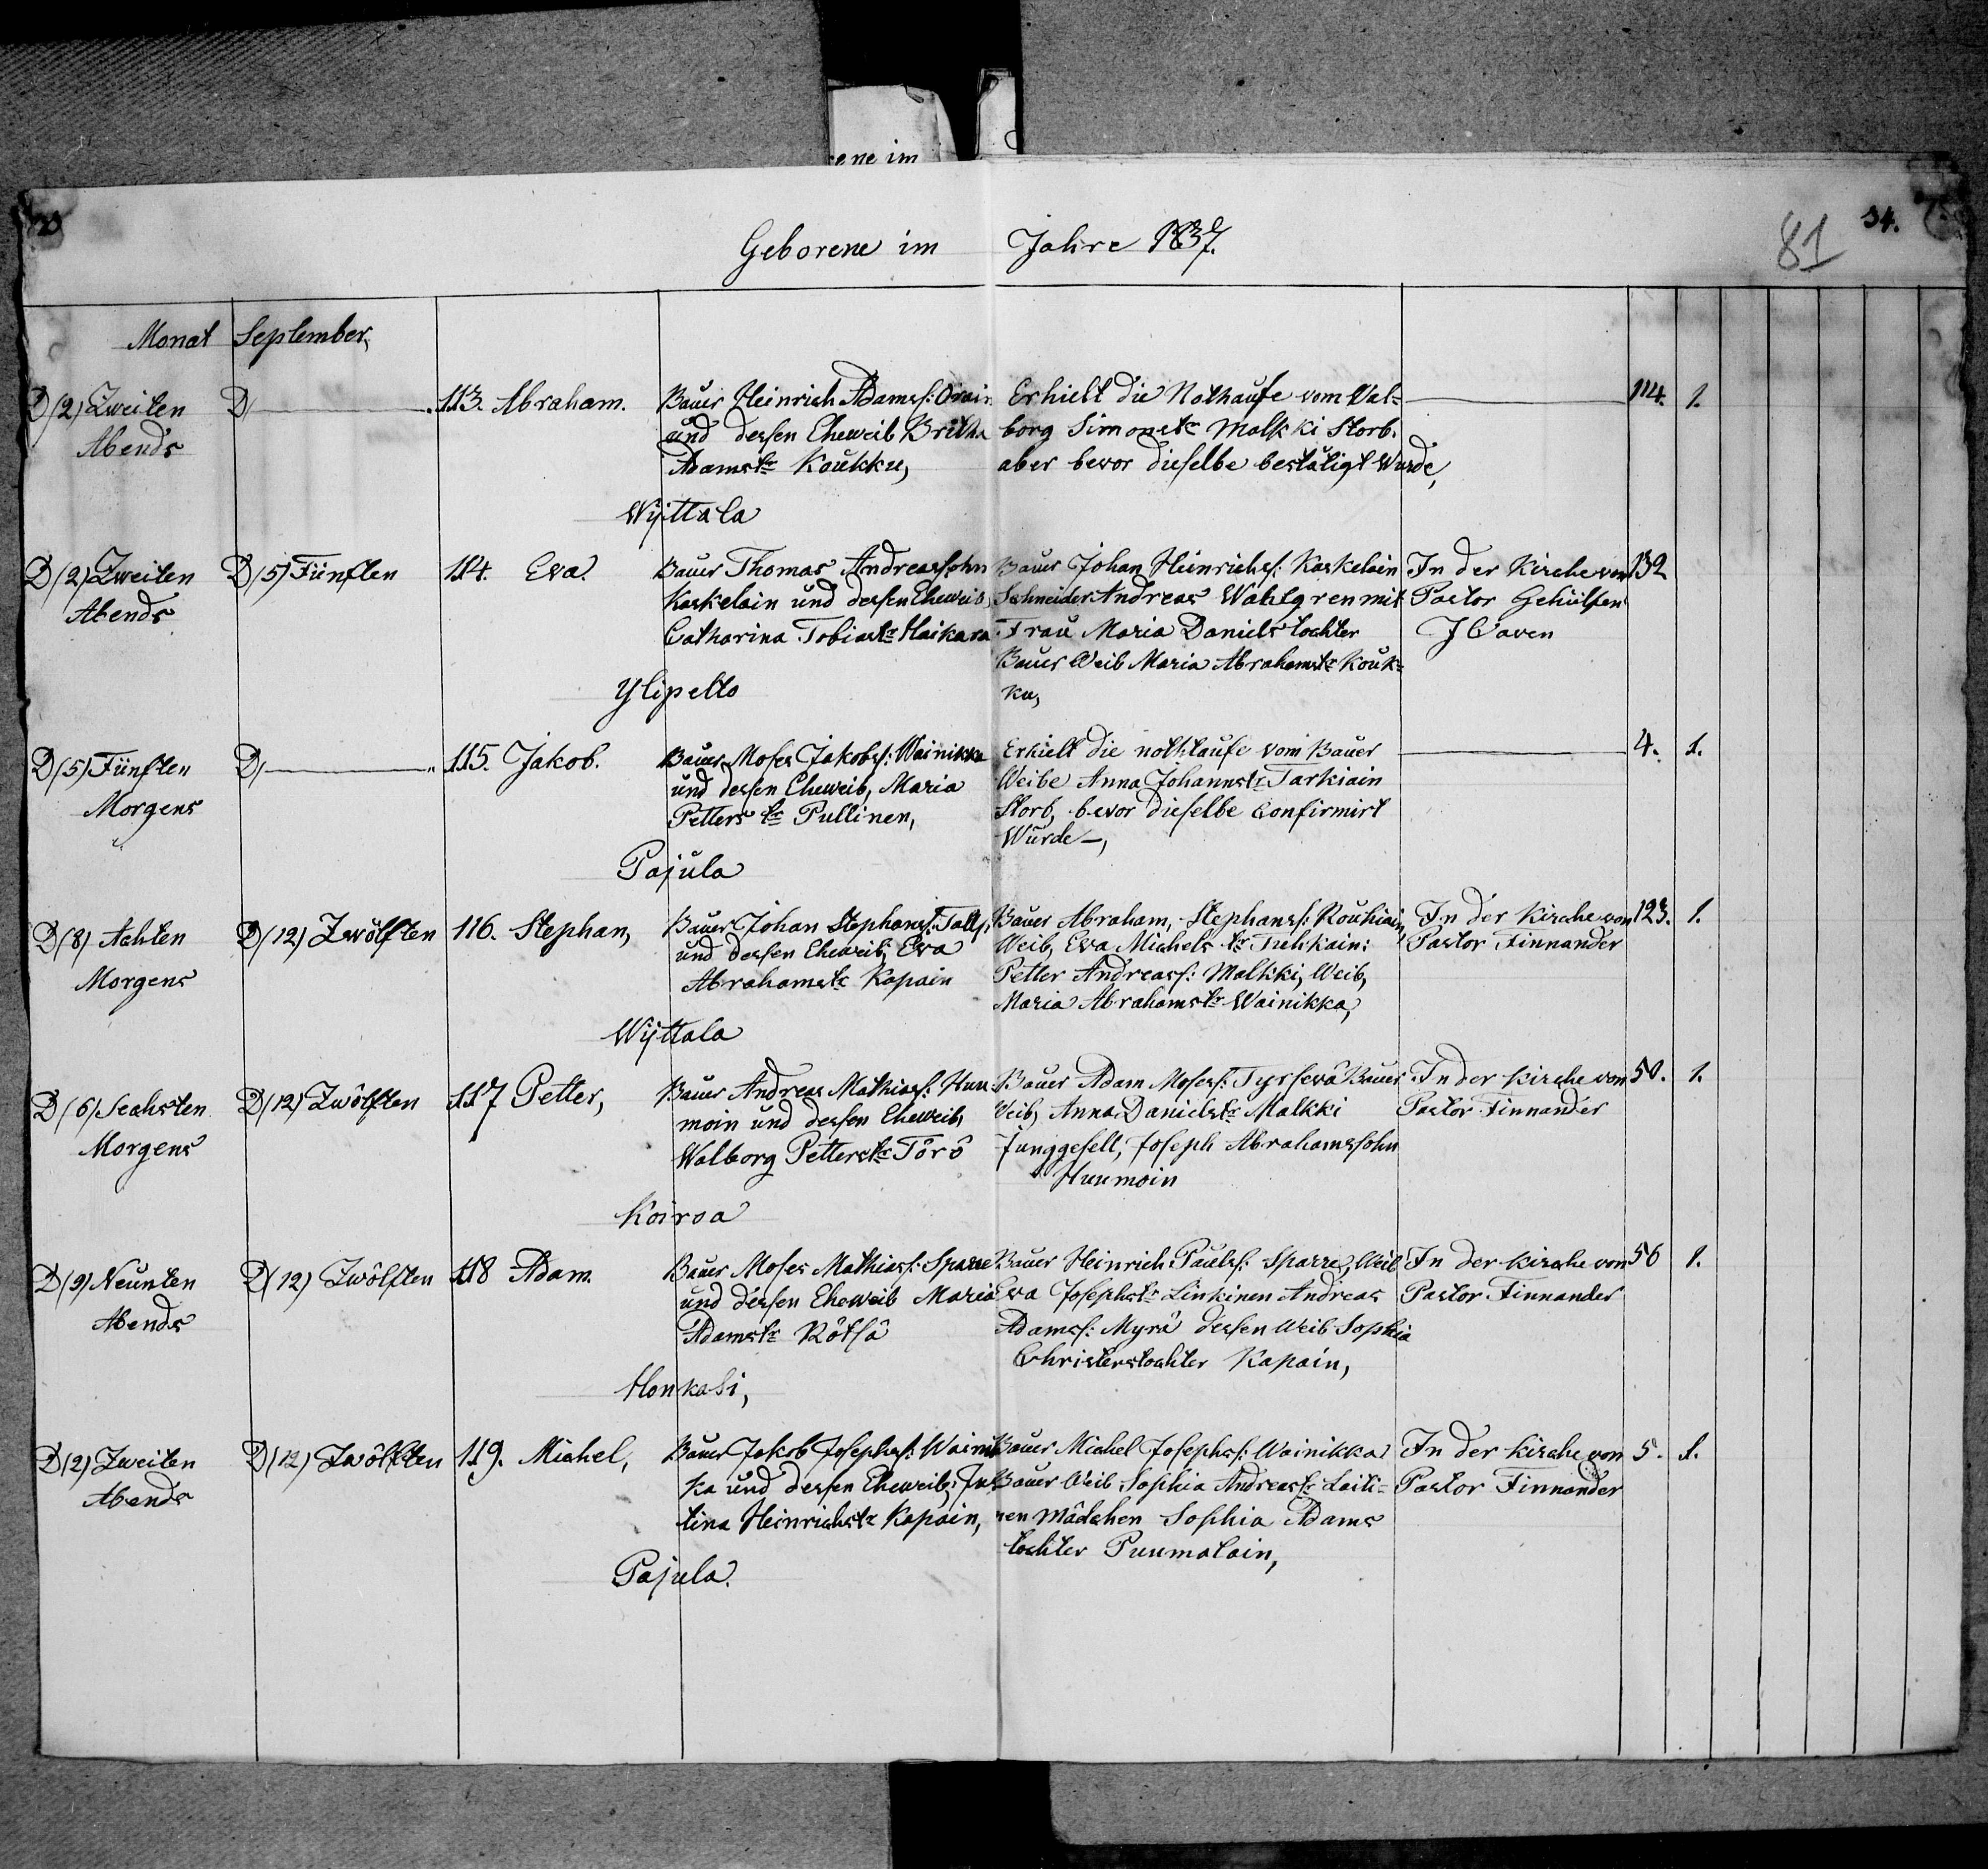 ene im
81 34.
Geborene im Jahre 1837.
Monat September,
D (2) Zweiten D 113. Abraham. Bauer Heinrich Adamss: Erhielt die Nothaufe vom Wal= 114. 1.
Abends und dessen Eheweib Britha borg Simonstr Malkki Storb.
Adamstr Koukku, aber bevor dieselbe bestätigt Wurde,
Wijttala
D (2) Zweiten D (5) Fünften 114. Eva. Bauer Thomas Andreassohn Bauer Johan Heinrichs: Kaskelain In der Kirche von 132
Abends Kaskelain und dessen Eheweib, Schneider Andreas Wahlgren mit Pastor Gehülfen
Catharina Tobiastr Haikara Frau Maria Danielstochter
Bauer Weib Maria Abrahamstr Kouk=
Ylipelto ku,
D (5) Fünften D 115. Jakob. Bauer Moses Jakobs: Wainikka Erhielt die nothtaufe vom Bauer 4. 1.
Morgens und dessen Eheweib, Maria Weibe Anna Johannstr Tarkiain
Petters tr Pullinen, Storb, bevor dieselbe Confirmirt
Wurde—,
Pajula
D (8) Achten D (12) Zwölften 116. Stephan, Bauer Johan Stephanss: Bauer Abraham, Stephanss: Roukiain, In der Kirche von 123. 1.
Morgens und dessen Eheweib, Eva Weib, Eva Michels tr Pastor Finnander
Abrahamstr Kapain Petter Andreass: Malkki, Weib,
Maria Abrahamstr Wainikka,
Wijttala
D (6) Seahsten D (12) Zwölften 117 Petter, Bauer Andreas Mathiass: Huu Bauer Adam Moses: Bauer In der Kirche von 50. 1.
Morgens moin und dessen Eheweib, Weib, Anna Danielstr Malkki Pastor Finnander
Walborg Petterstr Törö Junggesell, Joseph Abrahamssohn
Huumoin
Koiroa
D (9) Neunten D (12) Zwölften 118 Adam. Bauer Moses Mathiass: Sparre Bauer Heinrich Pauls: Sparre, Weib In der Kirche von 56 1.
Abends und dessen Eheweib Maria Eva Josephstr Linkinen Andreas Pastor Finnander
Adamstr Rötsä Adamss: Myrä dessen Weib Sophia
Christerstochter Kapain,
Honkasi,
D (2) Zweiten D (12) Zwölften 119. Michel, Bauer Jakob Josephs: Wainik Bauer Michel Josephs: Wainikka In der Kirche von 5. 1.
Abends ka und dessen Eheweib, Bauer Weib, Sophia Andreasstr Laiti= Pastor Finnander
tina Heinrichstr Kapain, nen Mädchen Sophia Adams
tochter Puumalain,
Pajula.